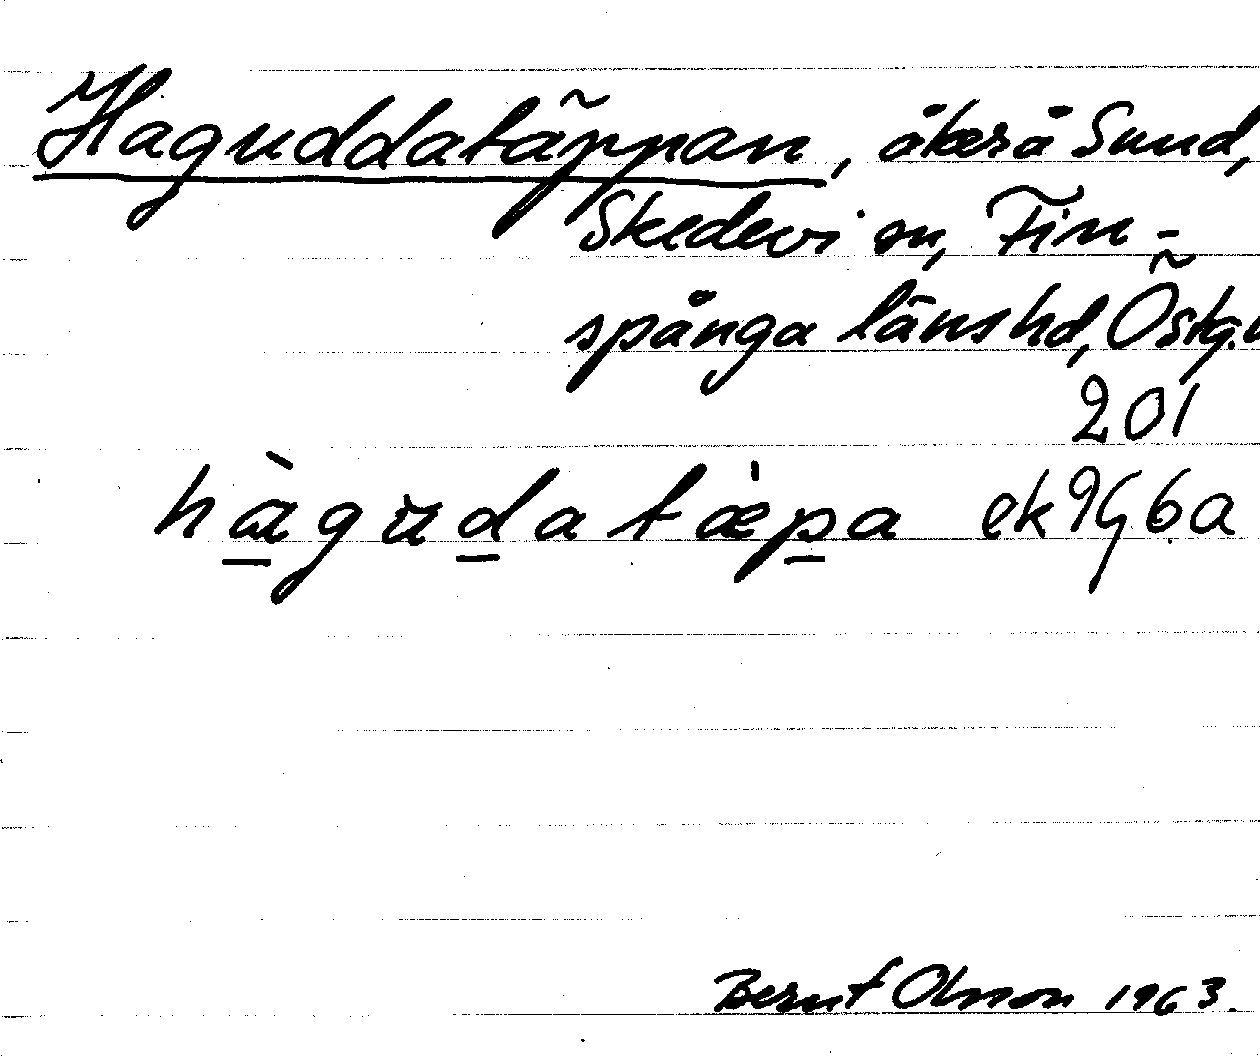 Haguddatäppan, åker å Sund,
Skedevi sn, Fin-
spånga länshd, Östg.
201
hàgudatæ̀pa ek 9G6a
Bernt Olsson 1963.